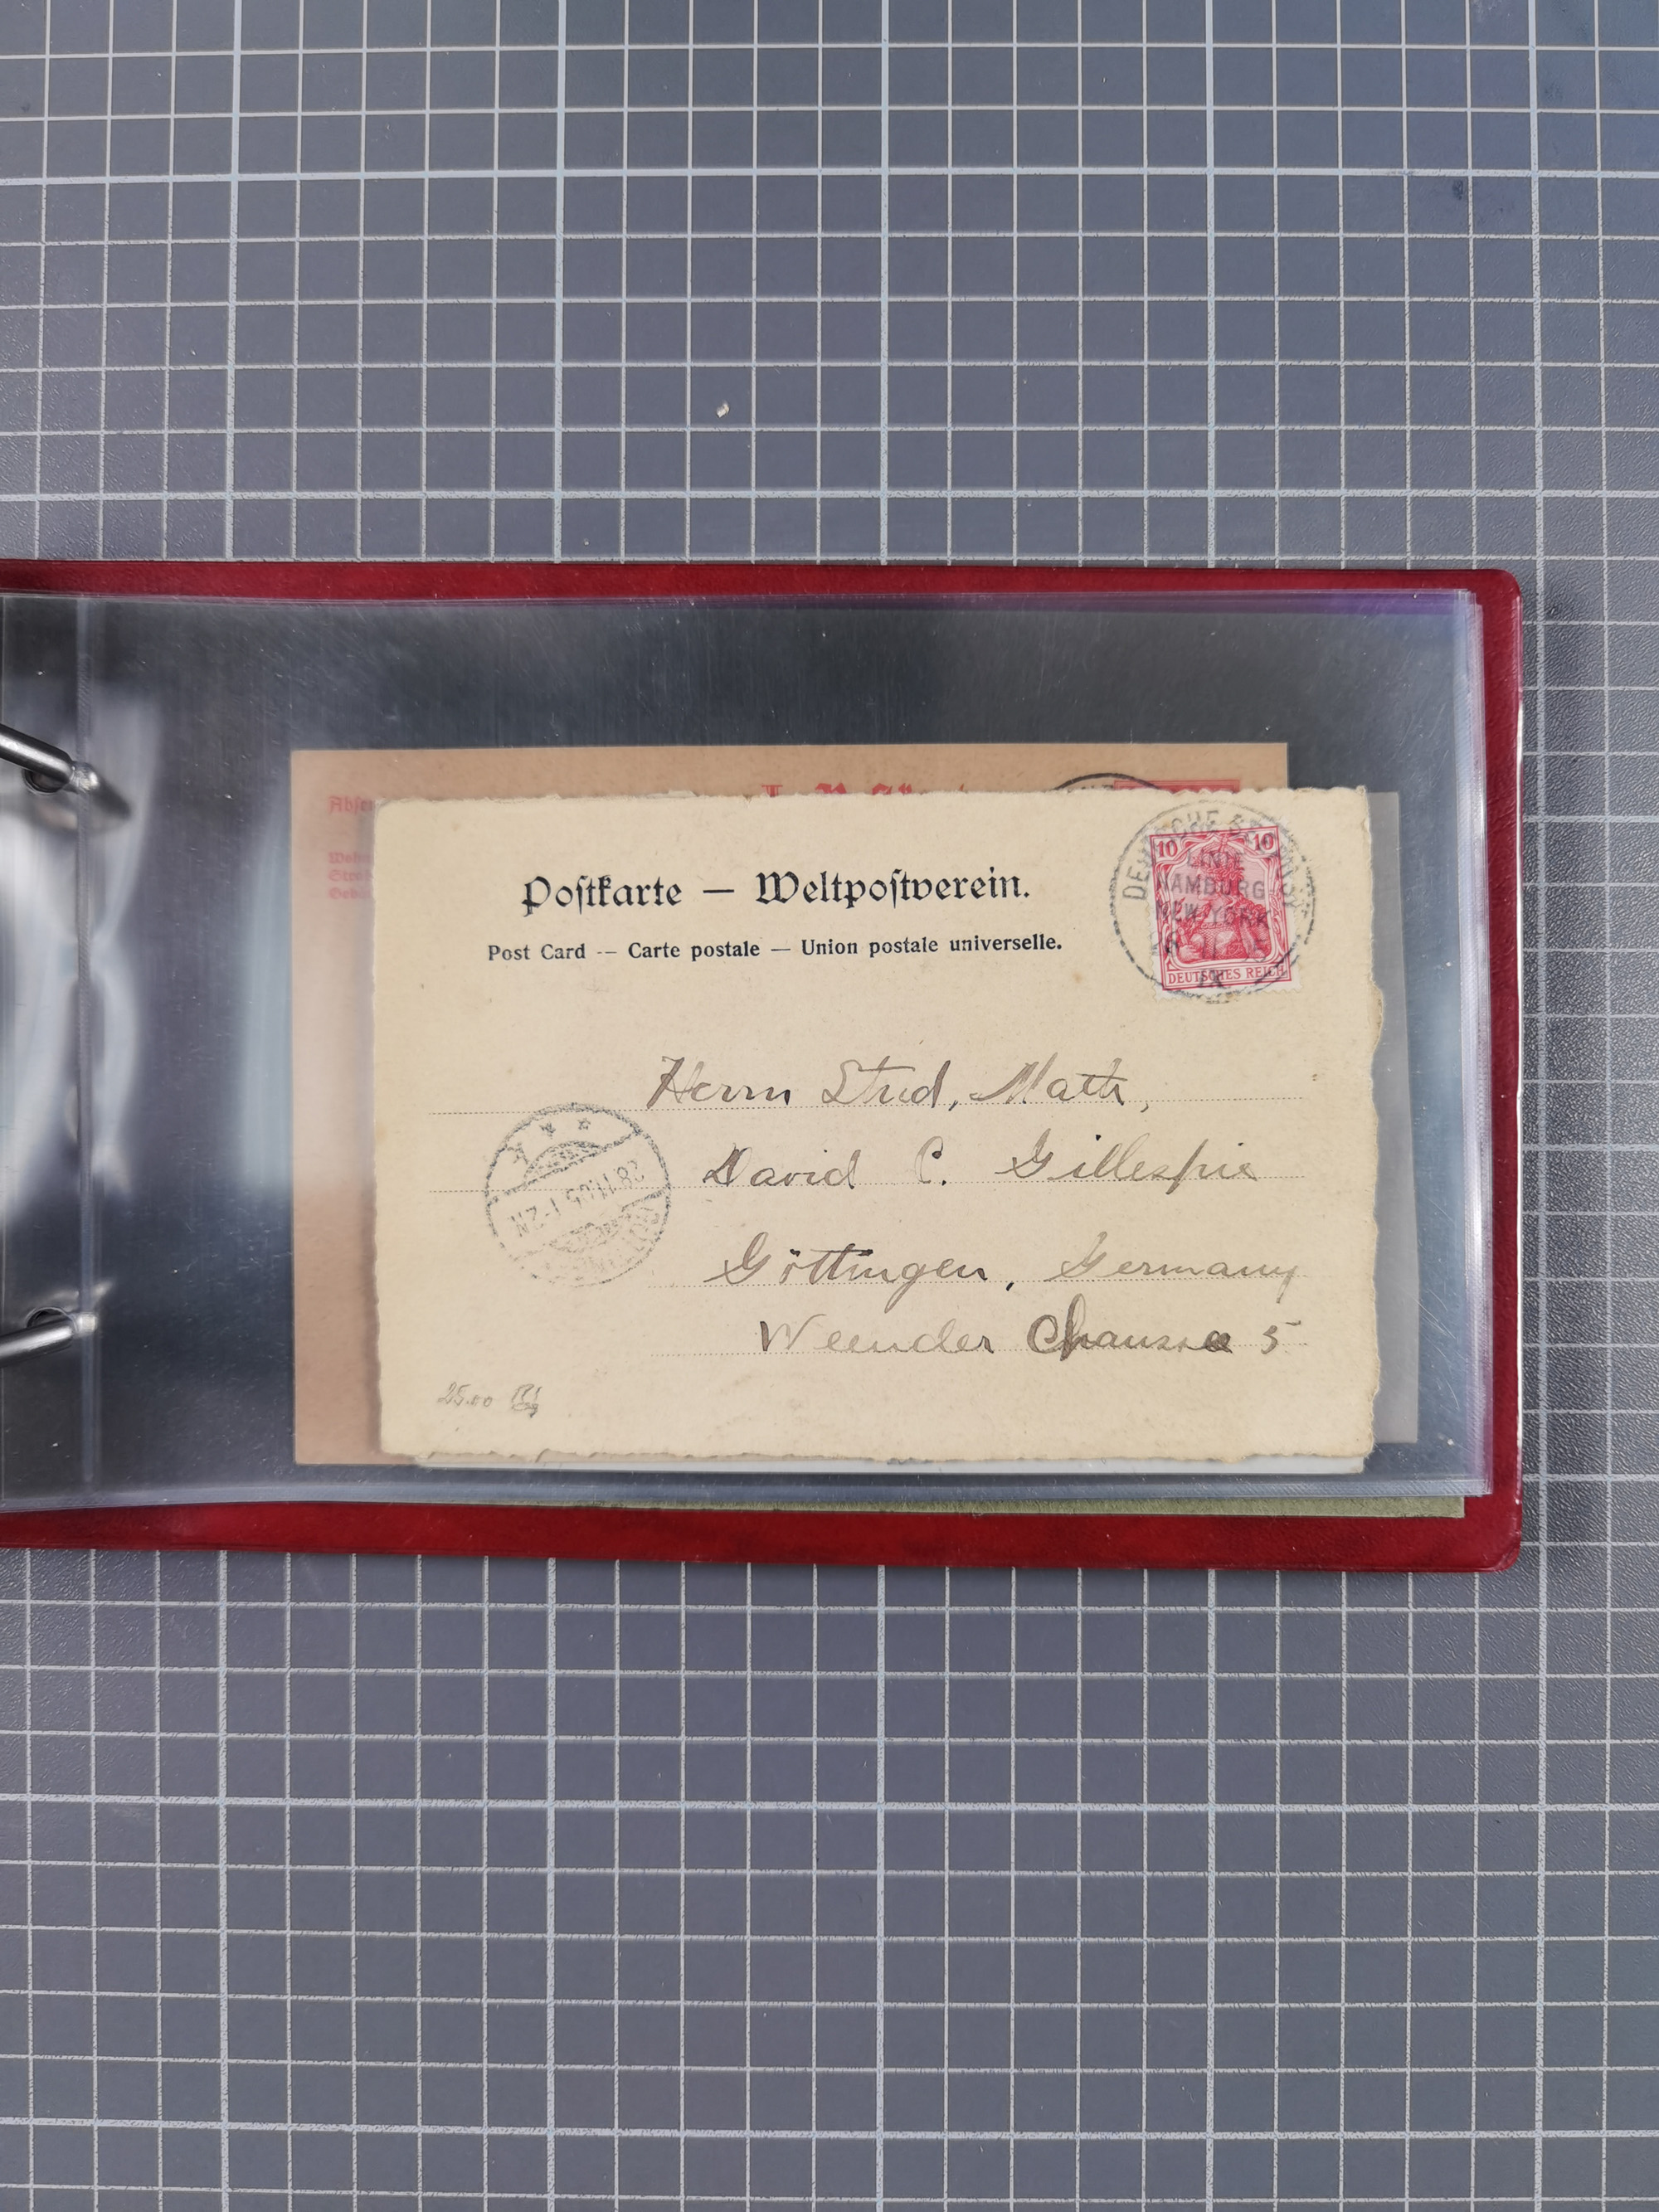 Postkarte — Weltpostverein.
Post Card -- Carte postale — Union postale universelle.
10 10
DEUTSCHES REICH
LINIE
HAMBURG-
NEW YORK
Herrn Stud, Math,
David C. Gillespie
Göttingen, Germany
Weender Chaussee 5
28.11.05.1-2N
25.00